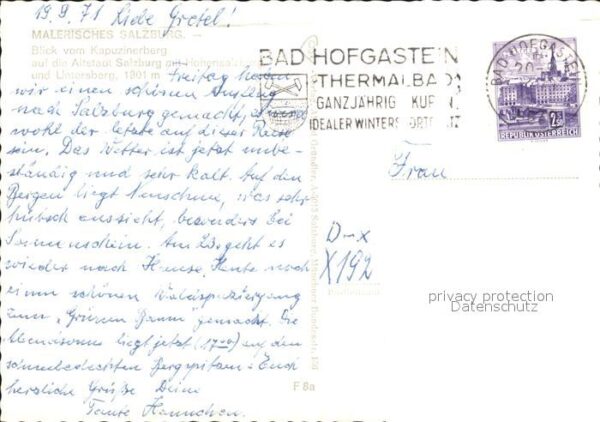 19.9.71 Liebe Gretel!
MALERISCHES SALZBURG. —
Blick vom Kapuzinerberg
auf die Altstadt Salzburg mit Hohensalzburg
und Untersberg, 1801 m
Freitag haben
wir einen schönen Ausflug
nach Salzburg gemacht, es wird
wohl der letzte auf dieser Reise
sein. Das Wetter ist jetzt unbe-
ständig und sehr kalt. Auf den
Bergen liegt Neuschnee, was sehr
hübsch aussieht, besonders bei
Sonnenschein. Am 23. geht es
wieder nach Hause. Heute noch
einen schönen Waldspaziergang
zum "Grünen Baum" gemacht. Die
liegt jetzt (17⁰⁰) auf den
schneebedeckten Bergspitzen. Euch
herzliche Grüße Deine
Tante Hannchen.
BAD HOFGASTEIN
THERMALBAD
GANZJÄHRIG KUREN
IDEALER WINTERSPORTPLATZ
BAD HOFGASTEIN
REPUBLIK ÖSTERREICH
Frau
D-x
X192
F 8a
privacy protection
Datenschutz